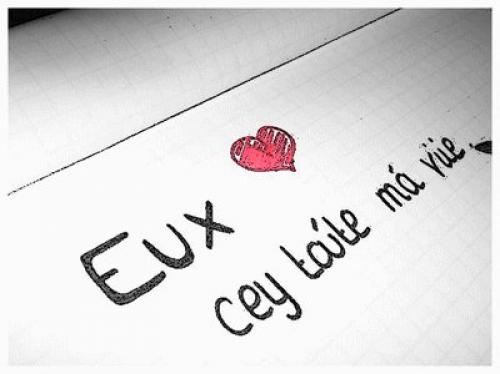 Eux
Cey táite má vüe.